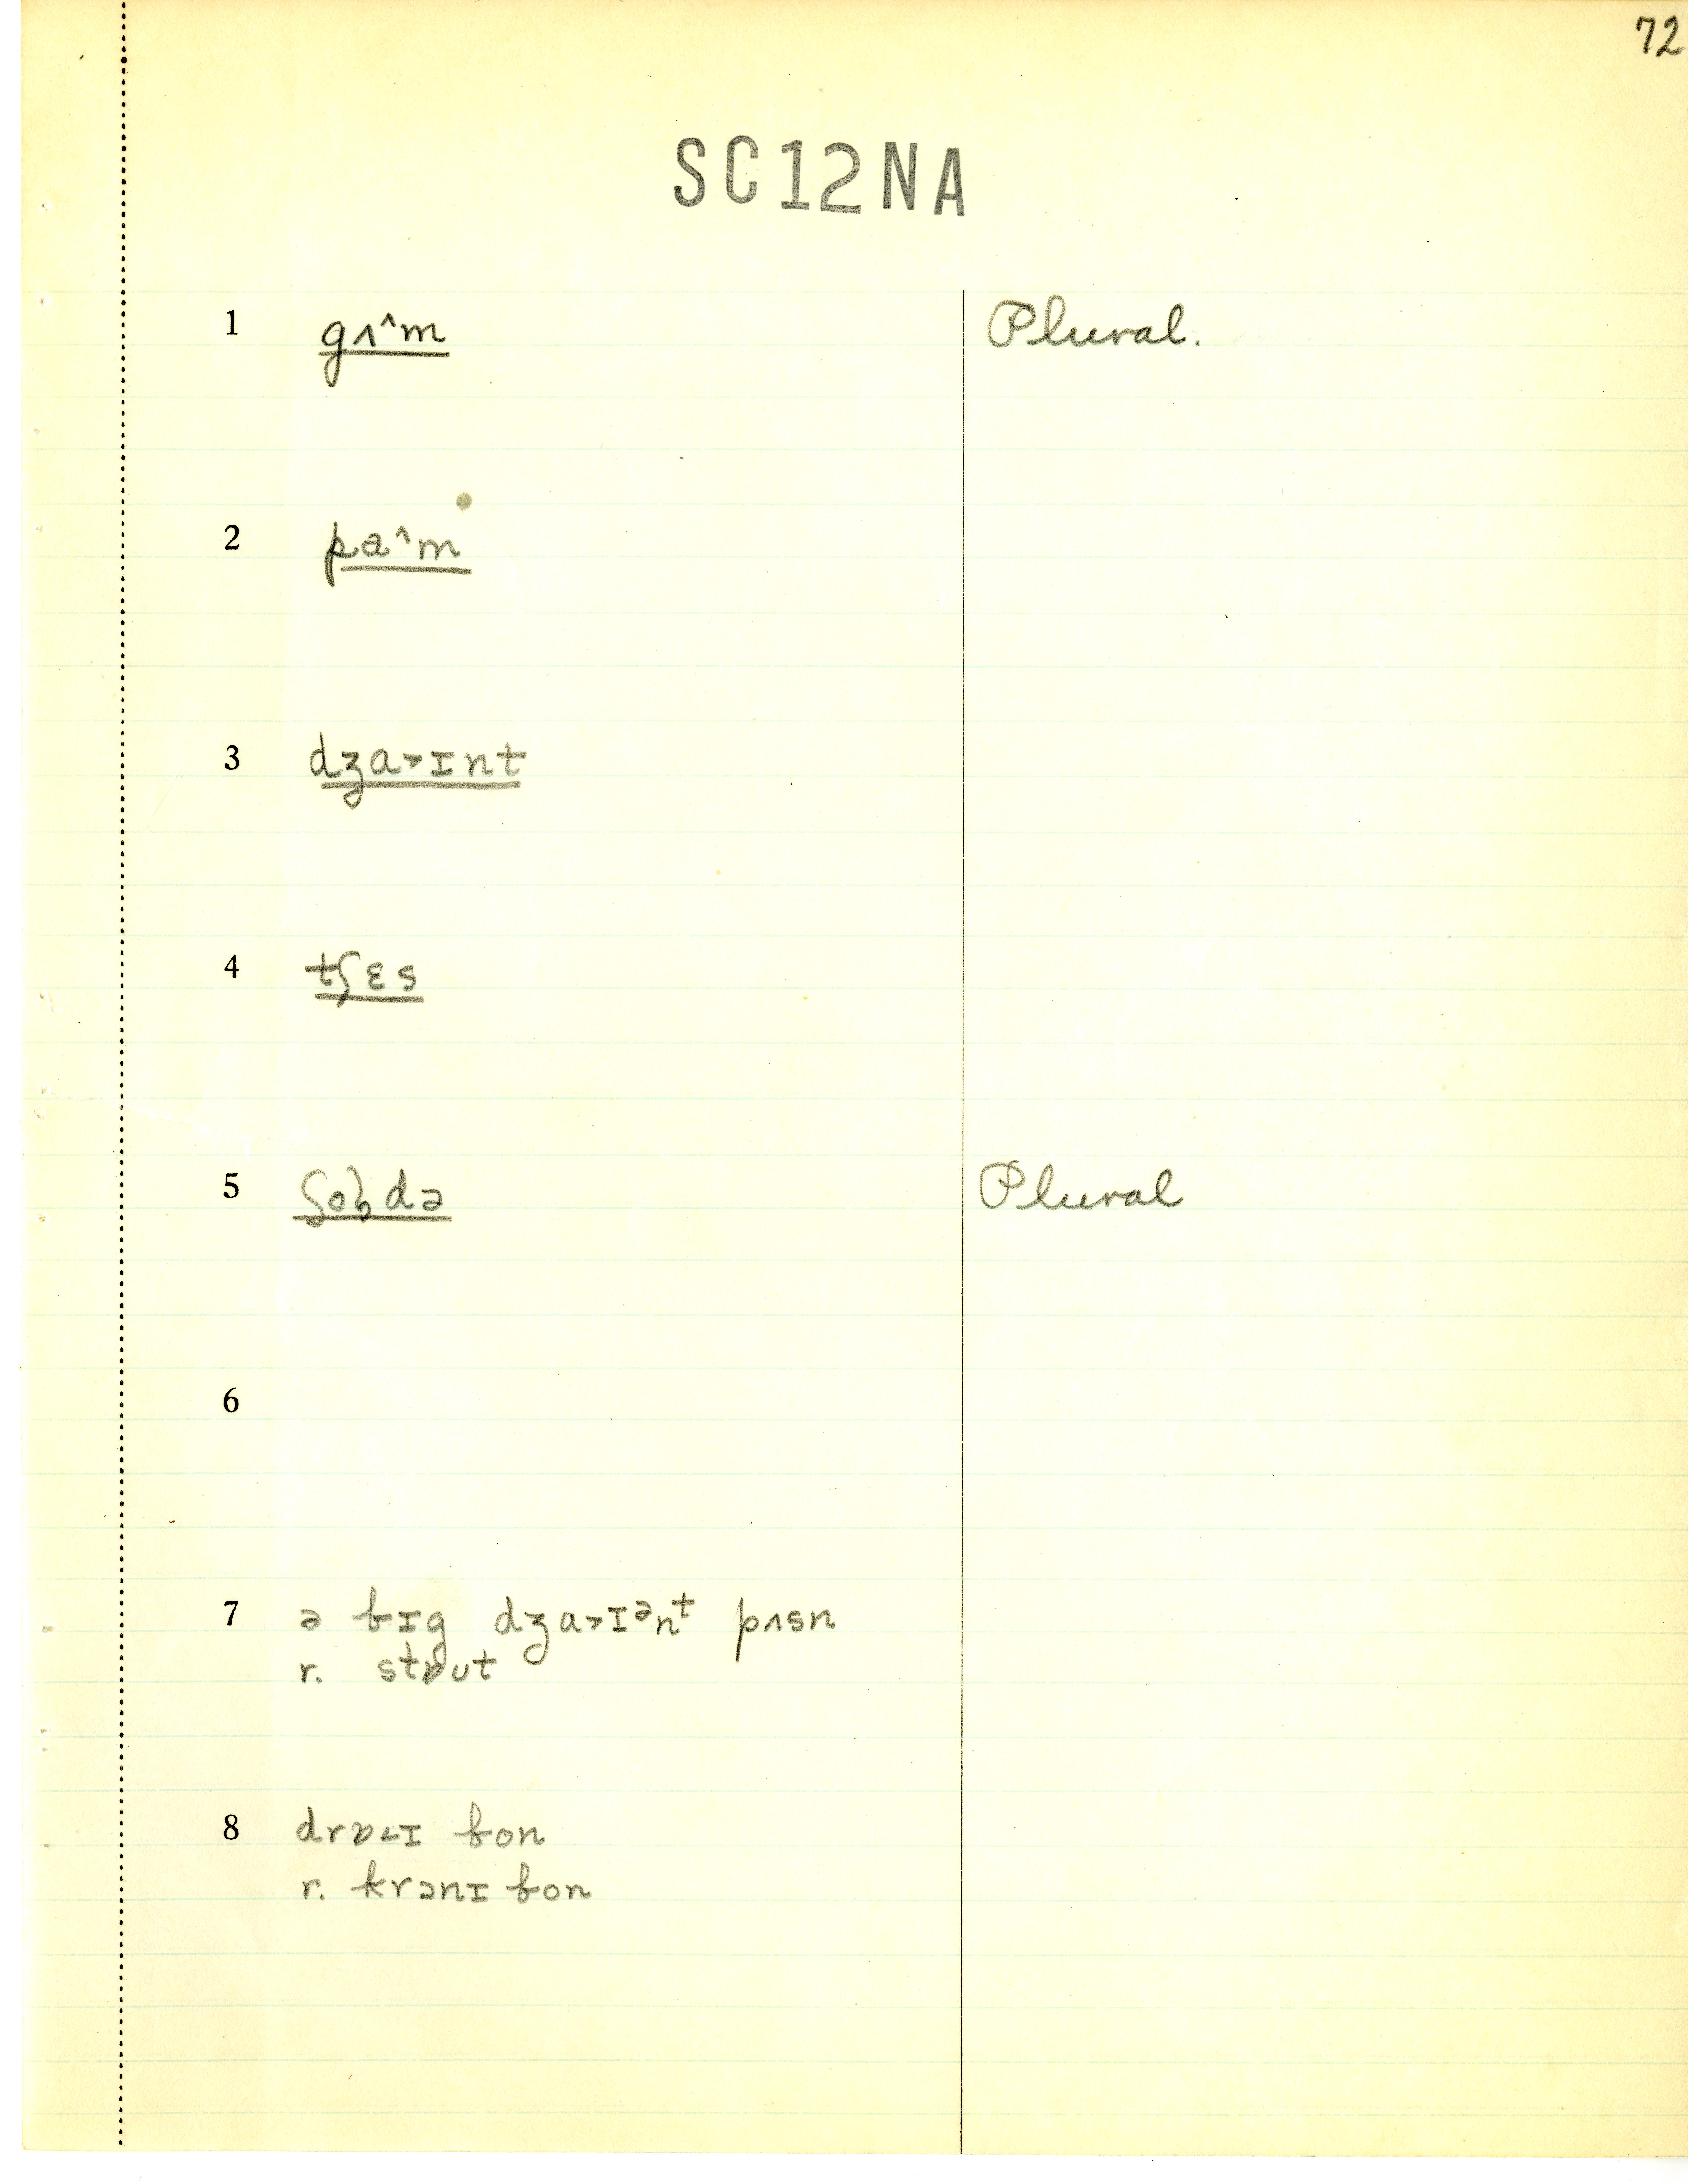 72
SC12NA
1 gʌ^m Plural.
2 pa^m
3 dʒa>ɪnt
4 tʃɛs
5 ʃoldə Plural
6
7 ə bɪg dʒa>ɪənt pʌsn
r. stɒut
8 drɒ<ɪ bon
r. krɔnɪ bon